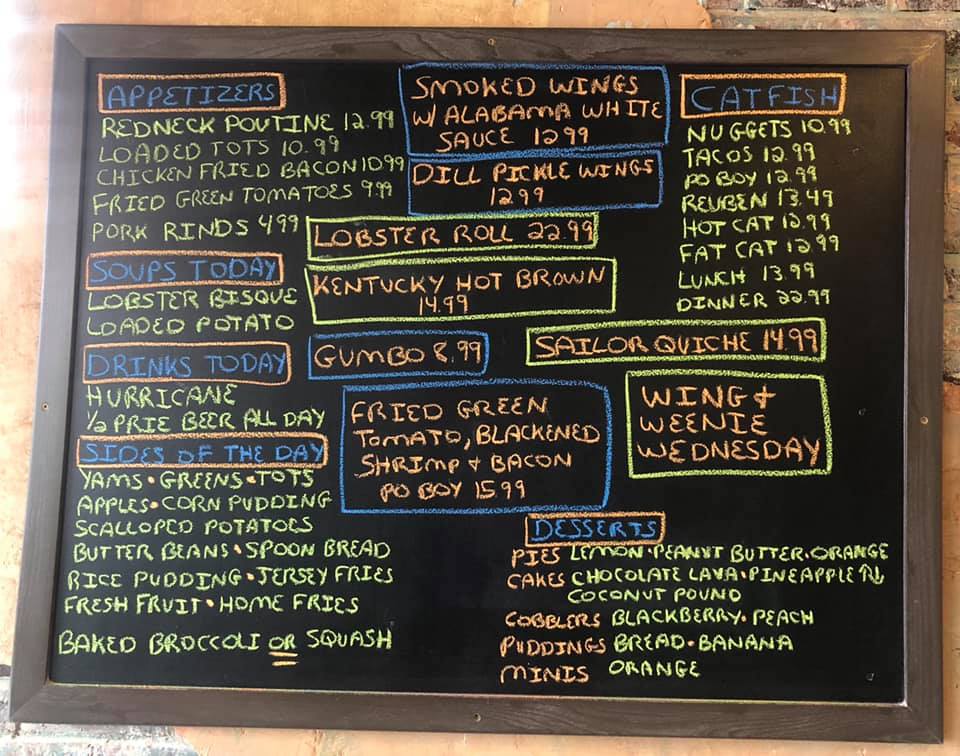 APPETIZERS
REDNECK POUTINE 12.99
LOADED TOTS 10.99
CHICKEN FRIED BACON 10 99
FRIED GREEN TOMATOES 9 99
PORK RINDS 4 99
SOUPS TODAY
LOBSTER BISQUE
LOADED POTATO
DRINKS TODAY
HURRICANE
1/2 PRIE BEER ALL DAY
SIDES OF THE DAY
YAMS • GREENS • TOTS
APPLES • CORN PUDDING
SCALLOPED POTATOES
BUTTER BEANS • SPOON BREAD
RICE PUDDING • JERSEY FRIES
FRESH FRUIT • HOME FRIES
BAKED BROCCOLI OR SQUASH
SMOKED WINGS
W/ ALABAMA WHITE
SAUCE 12 99
DILL PICKLE WINGS
12 99
LOBSTER ROLL 22.99
KENTUCKY HOT BROWN
14.99
GUMBO 8.99
FRIED GREEN
TOMATO, BLACKENED
SHRIMP + BACON
PO BOY 15.99
CATFISH
NUGGETS 10.99
TACOS 12.99
PO BOY 12.99
REUBEN 13.49
HOT CAT 12.99
FAT CAT 12 99
LUNCH 13.99
DINNER 22.99
SAILOR QUICHE 14.99
WING +
WEENIE
WEDNESDAY
DESSERTS
PIES LEMON • PEANUT BUTTER • ORANGE
CAKES CHOCOLATE LAVA • PINEAPPLE ↑↓
COCONUT POUND
COBBLERS BLACKBERRY • PEACH
PUDDINGS BREAD • BANANA
MINIS ORANGE